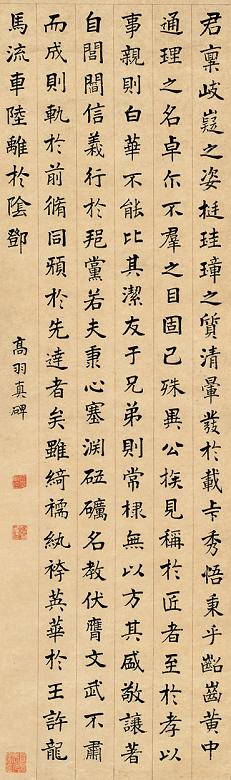 君稟岐嶷之姿挺珪璋之質清暈發於載卡秀悟秉乎齠齒黃中
通理之名卓尒不羣之目固已殊異公族見稱於匠者至於孝以
事親則白華不能比其潔友于兄弟則常棣無以方其盛敬讓著
自閭閻信義行於邦黨若夫秉心塞淵砥礪名教伏膺文武不肅
而成則軌於前脩同於先達者矣雖綺襦紈袴英華於王許龍
馬流車陸離於陰鄧
髙羽真碑